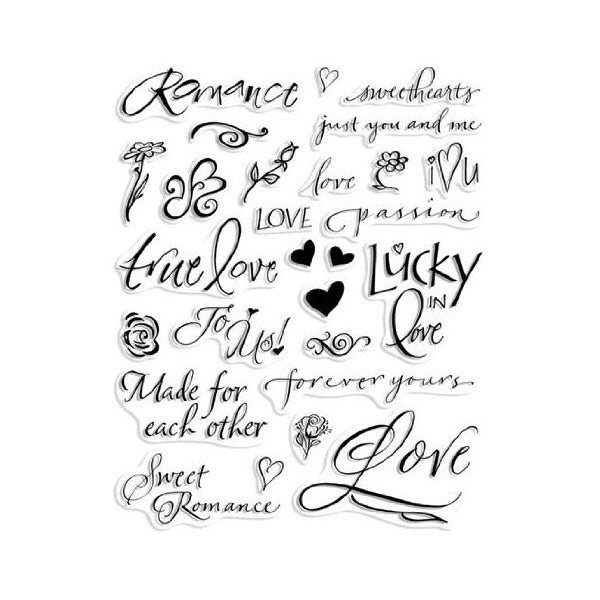 Romance
sweethearts
just you and me
love
i U
LOVE
passion
true love
Lucky
IN
love
To
Us!
Made for
each other
forever yours
Love
Sweet
Romance